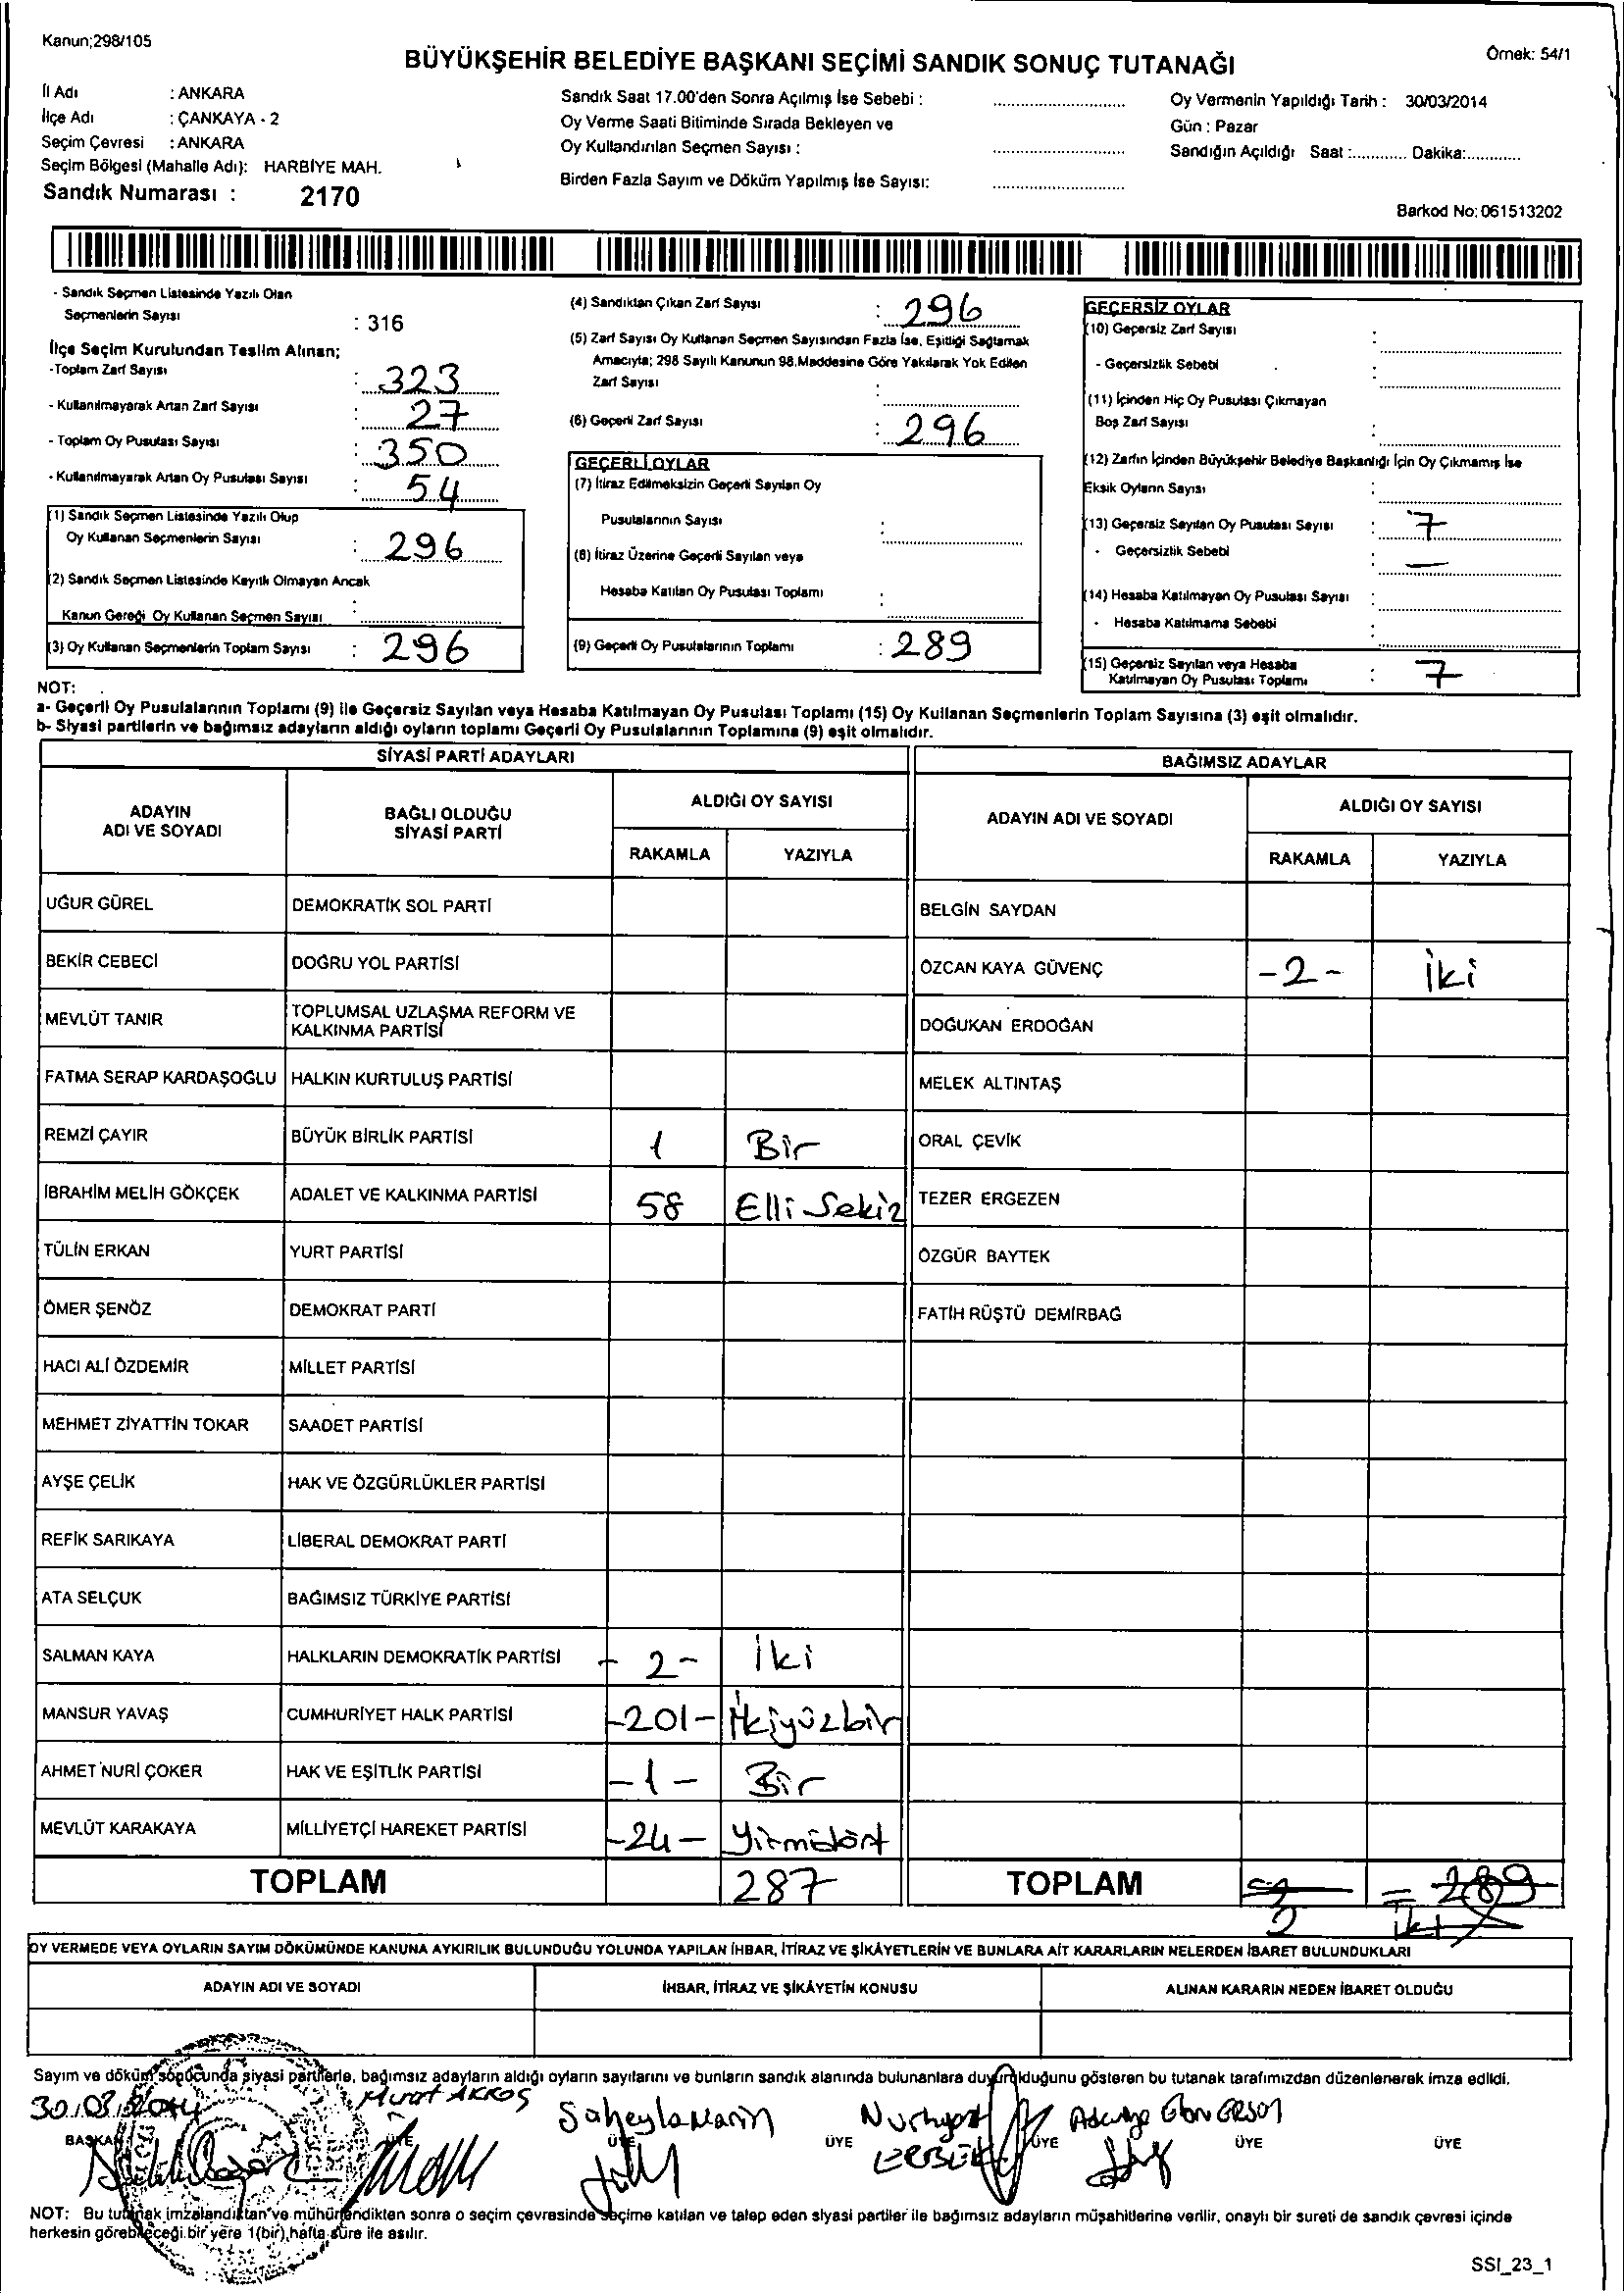 Kanun;298/105
Örnek: 54/1
BÜYÜKŞEHİR BELEDİYE BAŞKANI SEÇİMİ SANDIK SONUÇ TUTANAĞI
İl Adı : ANKARA
İlçe Adı : ÇANKAYA - 2
Seçim Çevresi : ANKARA
Seçim Bölgesi (Mahalle Adı): HARBİYE MAH.
Sandık Numarası : 2170
Sandık Saat 17.00'den Sonra Açılmış İse Sebebi :
Oy Verme Saati Bitiminde Sırada Bekleyen ve
Oy Kullandırılan Seçmen Sayısı :
Birden Fazla Sayım ve Döküm Yapılmış İse Sayısı:
Oy Vermenin Yapıldığı Tarih : 30/03/2014
Gün : Pazar
Sandığın Açıldığı Saat :............ Dakika:............
Barkod No: 061513202
- Sandık Seçmen Listesinde Yazılı Olan
Seçmenlerin Sayısı : 316
İlçe Seçim Kurulundan Teslim Alınan;
-Toplam Zarf Sayısı : 323
- Kullanılmayarak Artan Zarf Sayısı : 27
- Toplam Oy Pusulası Sayısı : 350
- Kullanılmayarak Artan Oy Pusulası Sayısı : 54
(1) Sandık Seçmen Listesinde Yazılı Olup
Oy Kullanan Seçmenlerin Sayısı : 296
(2) Sandık Seçmen Listesinde Kayıtlı Olmayan Ancak
Kanun Gereği Oy Kullanan Seçmen Sayısı :
(3) Oy Kullanan Seçmenlerin Toplam Sayısı : 296
(4) Sandıktan Çıkan Zarf Sayısı : 296
(5) Zarf Sayısı Oy Kullanan Seçmen Sayısından Fazla İse, Eşitliği Sağlamak
Amacıyla; 298 Sayılı Kanunun 98.Maddesine Göre Yakılarak Yok Edilen
Zarf Sayısı :
(6) Geçerli Zarf Sayısı : 296
GEÇERLİ OYLAR
(7) İtiraz Edilmeksizin Geçerli Sayılan Oy
Pusulalarının Sayısı :
(8) İtiraz Üzerine Geçerli Sayılan veya
Hesaba Katılan Oy Pusulası Toplamı :
(9) Geçerli Oy Pusulalarının Toplamı : 289
GEÇERSİZ OYLAR
(10) Geçersiz Zarf Sayısı :
- Geçersizlik Sebebi :
(11) İçinden Hiç Oy Pusulası Çıkmayan
Boş Zarf Sayısı :
(12) Zarfın İçinden Büyükşehir Belediye Başkanlığı İçin Oy Çıkmamış İse
Eksik Oyların Sayısı :
(13) Geçersiz Sayılan Oy Pusulası Sayısı : 7
- Geçersizlik Sebebi : —
(14) Hesaba Katılmayan Oy Pusulası Sayısı :
- Hesaba Katılmama Sebebi :
(15) Geçersiz Sayılan veya Hesaba
Katılmayan Oy Pusulası Toplamı : 7
NOT:
a- Geçerli Oy Pusulalarının Toplamı (9) ile Geçersiz Sayılan veya Hesaba Katılmayan Oy Pusulası Toplamı (15) Oy Kullanan Seçmenlerin Toplam Sayısına (3) eşit olmalıdır.
b- Siyasi partilerin ve bağımsız adayların aldığı oyların toplamı Geçerli Oy Pusulalarının Toplamına (9) eşit olmalıdır.
SİYASİ PARTİ ADAYLARI
ADAYIN ADI VE SOYADI
BAĞLI OLDUĞU SİYASİ PARTİ
ALDIĞI OY SAYISI
RAKAMLA YAZIYLA
UĞUR GÜREL DEMOKRATİK SOL PARTİ
BEKİR CEBECİ DOĞRU YOL PARTİSİ
MEVLÜT TANIR TOPLUMSAL UZLAŞMA REFORM VE
KALKINMA PARTİSİ
FATMA SERAP KARDAŞOĞLU HALKIN KURTULUŞ PARTİSİ
REMZİ ÇAYIR BÜYÜK BİRLİK PARTİSİ 1 Bir
İBRAHİM MELİH GÖKÇEK ADALET VE KALKINMA PARTİSİ 58 Elli Sekiz
TÜLİN ERKAN YURT PARTİSİ
ÖMER ŞENÖZ DEMOKRAT PARTİ
HACI ALİ ÖZDEMİR MİLLET PARTİSİ
MEHMET ZİYATTİN TOKAR SAADET PARTİSİ
AYŞE ÇELİK HAK VE ÖZGÜRLÜKLER PARTİSİ
REFİK SARIKAYA LİBERAL DEMOKRAT PARTİ
ATA SELÇUK BAĞIMSIZ TÜRKİYE PARTİSİ
SALMAN KAYA HALKLARIN DEMOKRATİK PARTİSİ - 2 - İki
MANSUR YAVAŞ CUMHURİYET HALK PARTİSİ -201- İkiyüzbir
AHMET NURİ ÇOKER HAK VE EŞİTLİK PARTİSİ -1- Bir
MEVLÜT KARAKAYA MİLLİYETÇİ HAREKET PARTİSİ -24- Yirmidört
TOPLAM 287
BAĞIMSIZ ADAYLAR
ADAYIN ADI VE SOYADI
ALDIĞI OY SAYISI
RAKAMLA YAZIYLA
BELGİN SAYDAN
ÖZCAN KAYA GÜVENÇ -2- İki
DOĞUKAN ERDOĞAN
MELEK ALTINTAŞ
ORAL ÇEVİK
TEZER ERGEZEN
ÖZGÜR BAYTEK
FATİH RÜŞTÜ DEMİRBAĞ
TOPLAM 289
2 İki
OY VERMEDE VEYA OYLARIN SAYIM DÖKÜMÜNDE KANUNA AYKIRILIK BULUNDUĞU YOLUNDA YAPILAN İHBAR, İTİRAZ VE ŞİKÂYETLERİN VE BUNLARA AİT KARARLARIN NELERDEN İBARET BULUNDUKLARI
ADAYIN ADI VE SOYADI İHBAR, İTİRAZ VE ŞİKÂYETİN KONUSU ALINAN KARARIN NEDEN İBARET OLDUĞU
Sayım ve döküm sonucunda siyasi partilerle, bağımsız adayların aldığı oyların sayılarını ve bunların sandık alanında bulunanlara duyurulduğunu gösteren bu tutanak tarafımızdan düzenlenerek imza edildi.
30.03.2014 Murat
BAŞKAN ÜYE ÜYE ÜYE ÜYE ÜYE ÜYE
NOT: Bu tutanak imzalandıktan ve mühürlendikten sonra o seçim çevresinde seçime katılan ve talep eden siyasi partiler ile bağımsız adayların müşahitlerine verilir, onaylı bir sureti de sandık çevresi içinde
herkesin görebileceği bir yere 1(bir) hafta süre ile asılır.
SSI_23_1